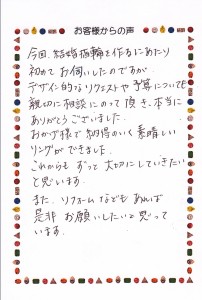 お客様からの声
今回、結婚指輪を作るにあたり
初めてお伺いしたのですが
デザイン的なリクエストや予算についても
親切に相談にのって頂き、本当に
ありがとうございました。
おかげ様で納得のいく素晴しい
リングができました。
これからもずっと大切にしていきたい
と思います。
また、リフォームなどもあれば
是非お願いしたいと思って
います。